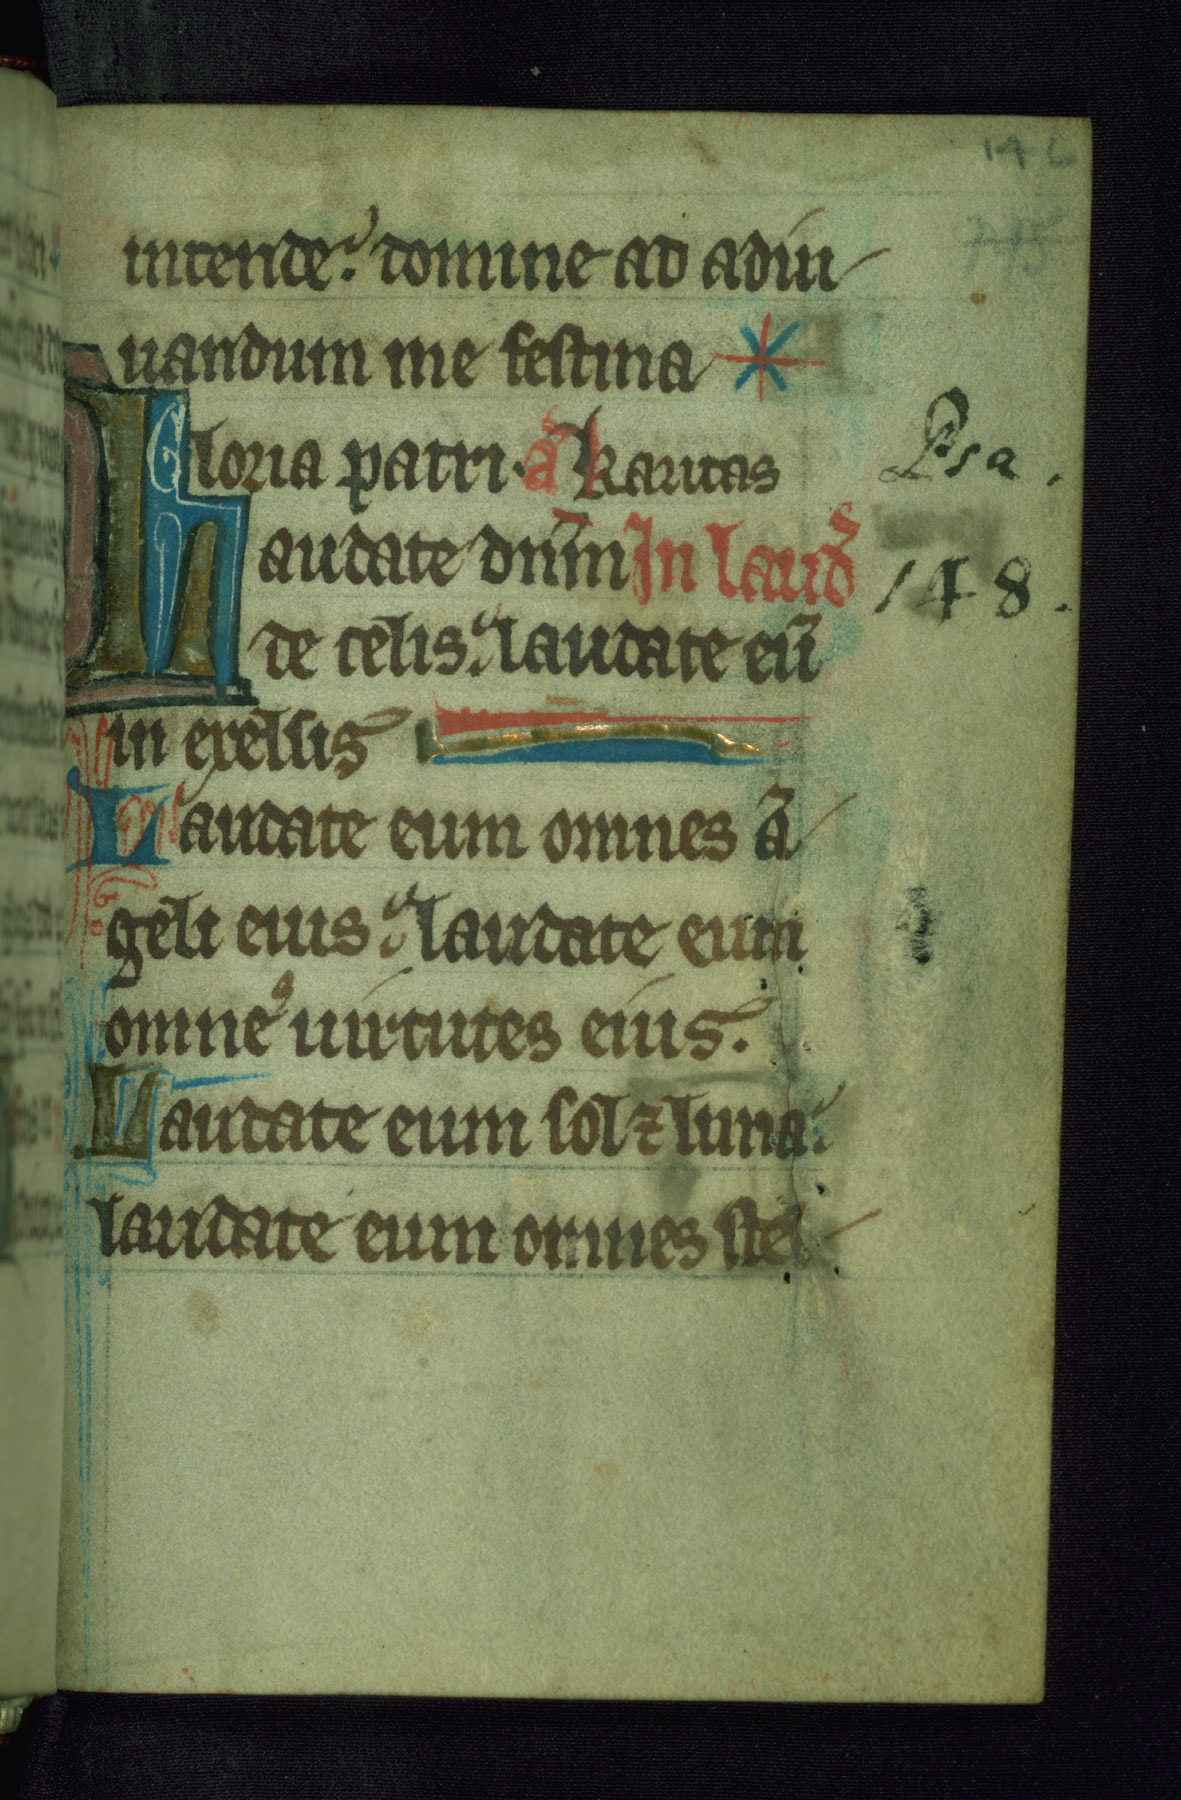 146
745
intende. domine ad adiu
uandum me festina
Gloria patri. a͂ Karitas
Psa.
Laudate dn̄m In laud᷒
148.
de celis. laudate eū
in excelsis
Laudate eum omnes ā
geli eius. laudate eum
omnes uirtutes eius.
Laudate eum sol ⁊ luna.
laudate eum omnes stel